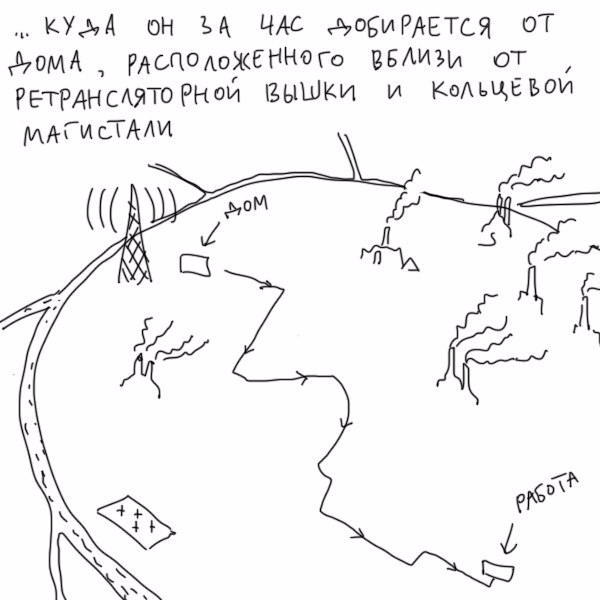 ... КУДА ОН ЗА ЧАС ДОБИРАЕТСЯ ОТ
ДОМА, РАСПОЛОЖЕННОГО ВБЛИЗИ ОТ
РЕТРАНСЛЯТОРНОЙ ВЫШКИ И КОЛЬЦЕВОЙ
МАГИСТАЛИ
ДОМ
РАБОТА